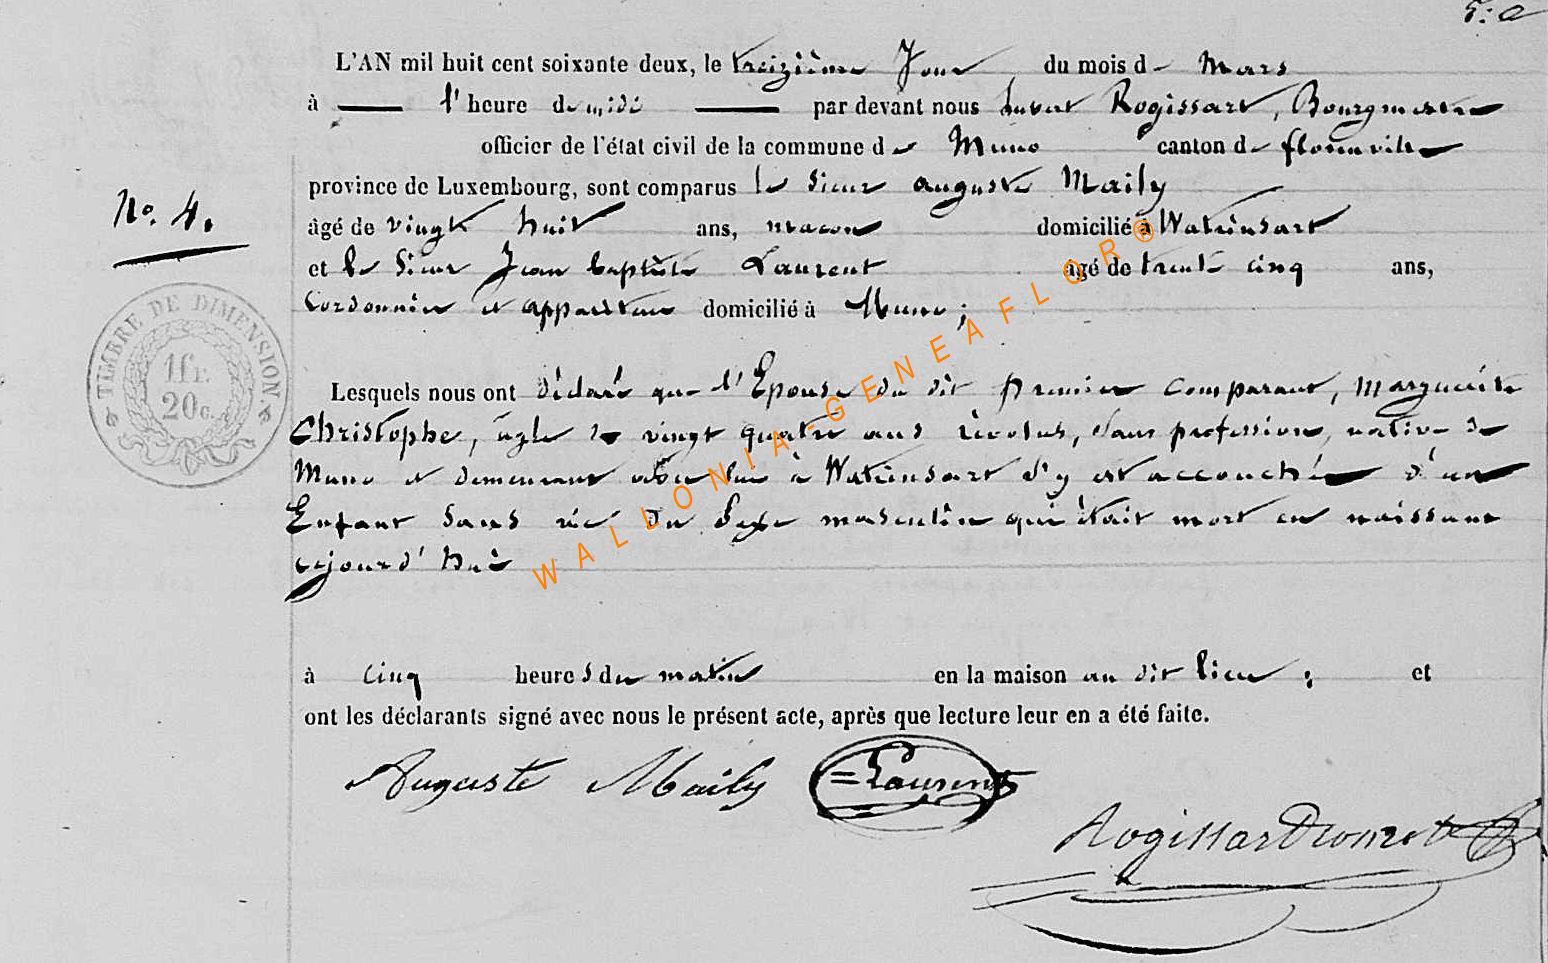 L'AN mil huit cent soixante deux, le treizième Jour, du mois de Mars
à l'heure de midi par devant nous hubert Rogissart, Bourgmestre
officier de l'état civil de la commune de Muno canton de florenville
province de Luxembourg, sont comparus le Sieur auguste Maily
No. 4.
âgé de vingt huit ans, macon domicilié à Watrinsart
et le Sieur Jean baptiste Laurent âgé de trente cinq ans,
Cordonnier et appariteur domicilié à Muno;
TIMBRE DE DIMENSION.
1 fr.
20 c.
Lesquels nous ont déclaré que l'Epouse du dit premier comparant, Marguerite
Christophe, agée de vingt quatre ans révolus, sans profession, native de
Muno et demeurant avec lui à Watrinsart s'y est accouchée d'un
Enfant sans vie du sexe masculin qui était mort en naissant
cejourd'hui
à cinq heures du matin en la maison au dit lieu; et
ont les déclarants signé avec nous le présent acte, après que lecture leur en a été faite.
Auguste Maily Laurent
Rogissart
WALLONIA-GENEAFLOR®